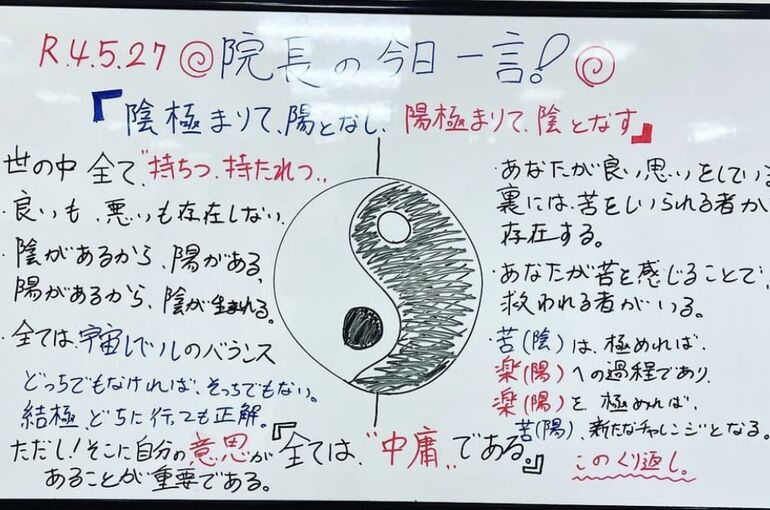 R.4.5.27 院長の今日一言!
『陰極まりて、陽となし、陽極まりて、陰となす』
世の中 全て、"持ちつ、持たれつ"
・良いも、悪いも存在しない。
・陰があるから、陽がある。
陽があるから、陰が生まれる。
・全ては、宇宙レベルのバランス
どっちでもなければ、そっちでもない。
結極、どちに行っても正解。
ただし!そこに自分の意思が
あることが重要である。
・あなたが良い思いをしている
裏には、苦をしいられる者が
存在する。
・あなたが苦を感じることで、
救われる者がいる。
苦(陰)は、極めれば、
楽(陽)への過程であり、
楽(陽)を、極めれば、
苦(陽)、新たなチャレンジとなる。
このくり返し。
『全ては、"中庸"である。』